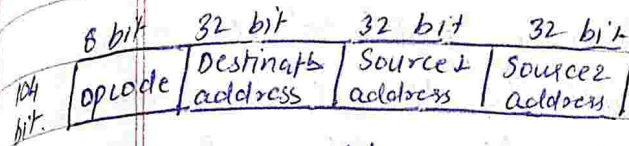 8 bit 32 bit 32 bit 32 bit
104 bit. opcode Destinatn address Source1 address Source2 address